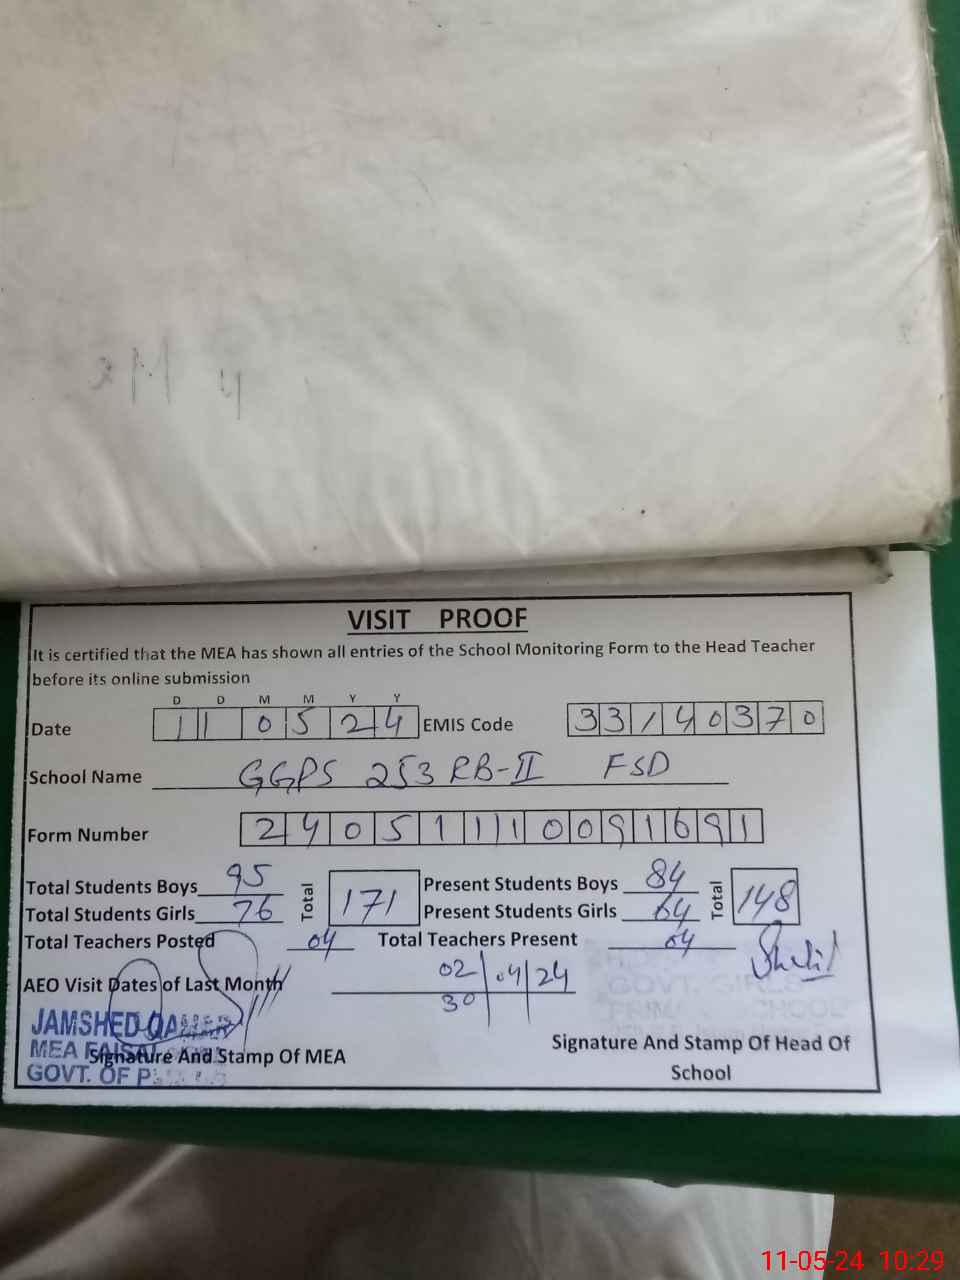 M 4
VISIT PROOF
It is certified that the MEA has shown all entries of the School Monitoring Form to the Head Teacher
before its online submission
D D M M Y Y
Date 11 05 24 EMIS Code 33140370
School Name GGPS 253 RB-II FSD
Form Number 24051110091691
Total Students Boys 95 Total 171 Present Students Boys 84 Total 148
Total Students Girls 76 Present Students Girls 64
Total Teachers Posted 04 Total Teachers Present 04
AEO Visit Dates of Last Month 02 04 24
30
GOVT. GIRLS
SCHOOL
JAMSHED
MEA
GOVT. OF
Signature And Stamp Of MEA
Signature And Stamp Of Head Of
School
11-05-24 10:29